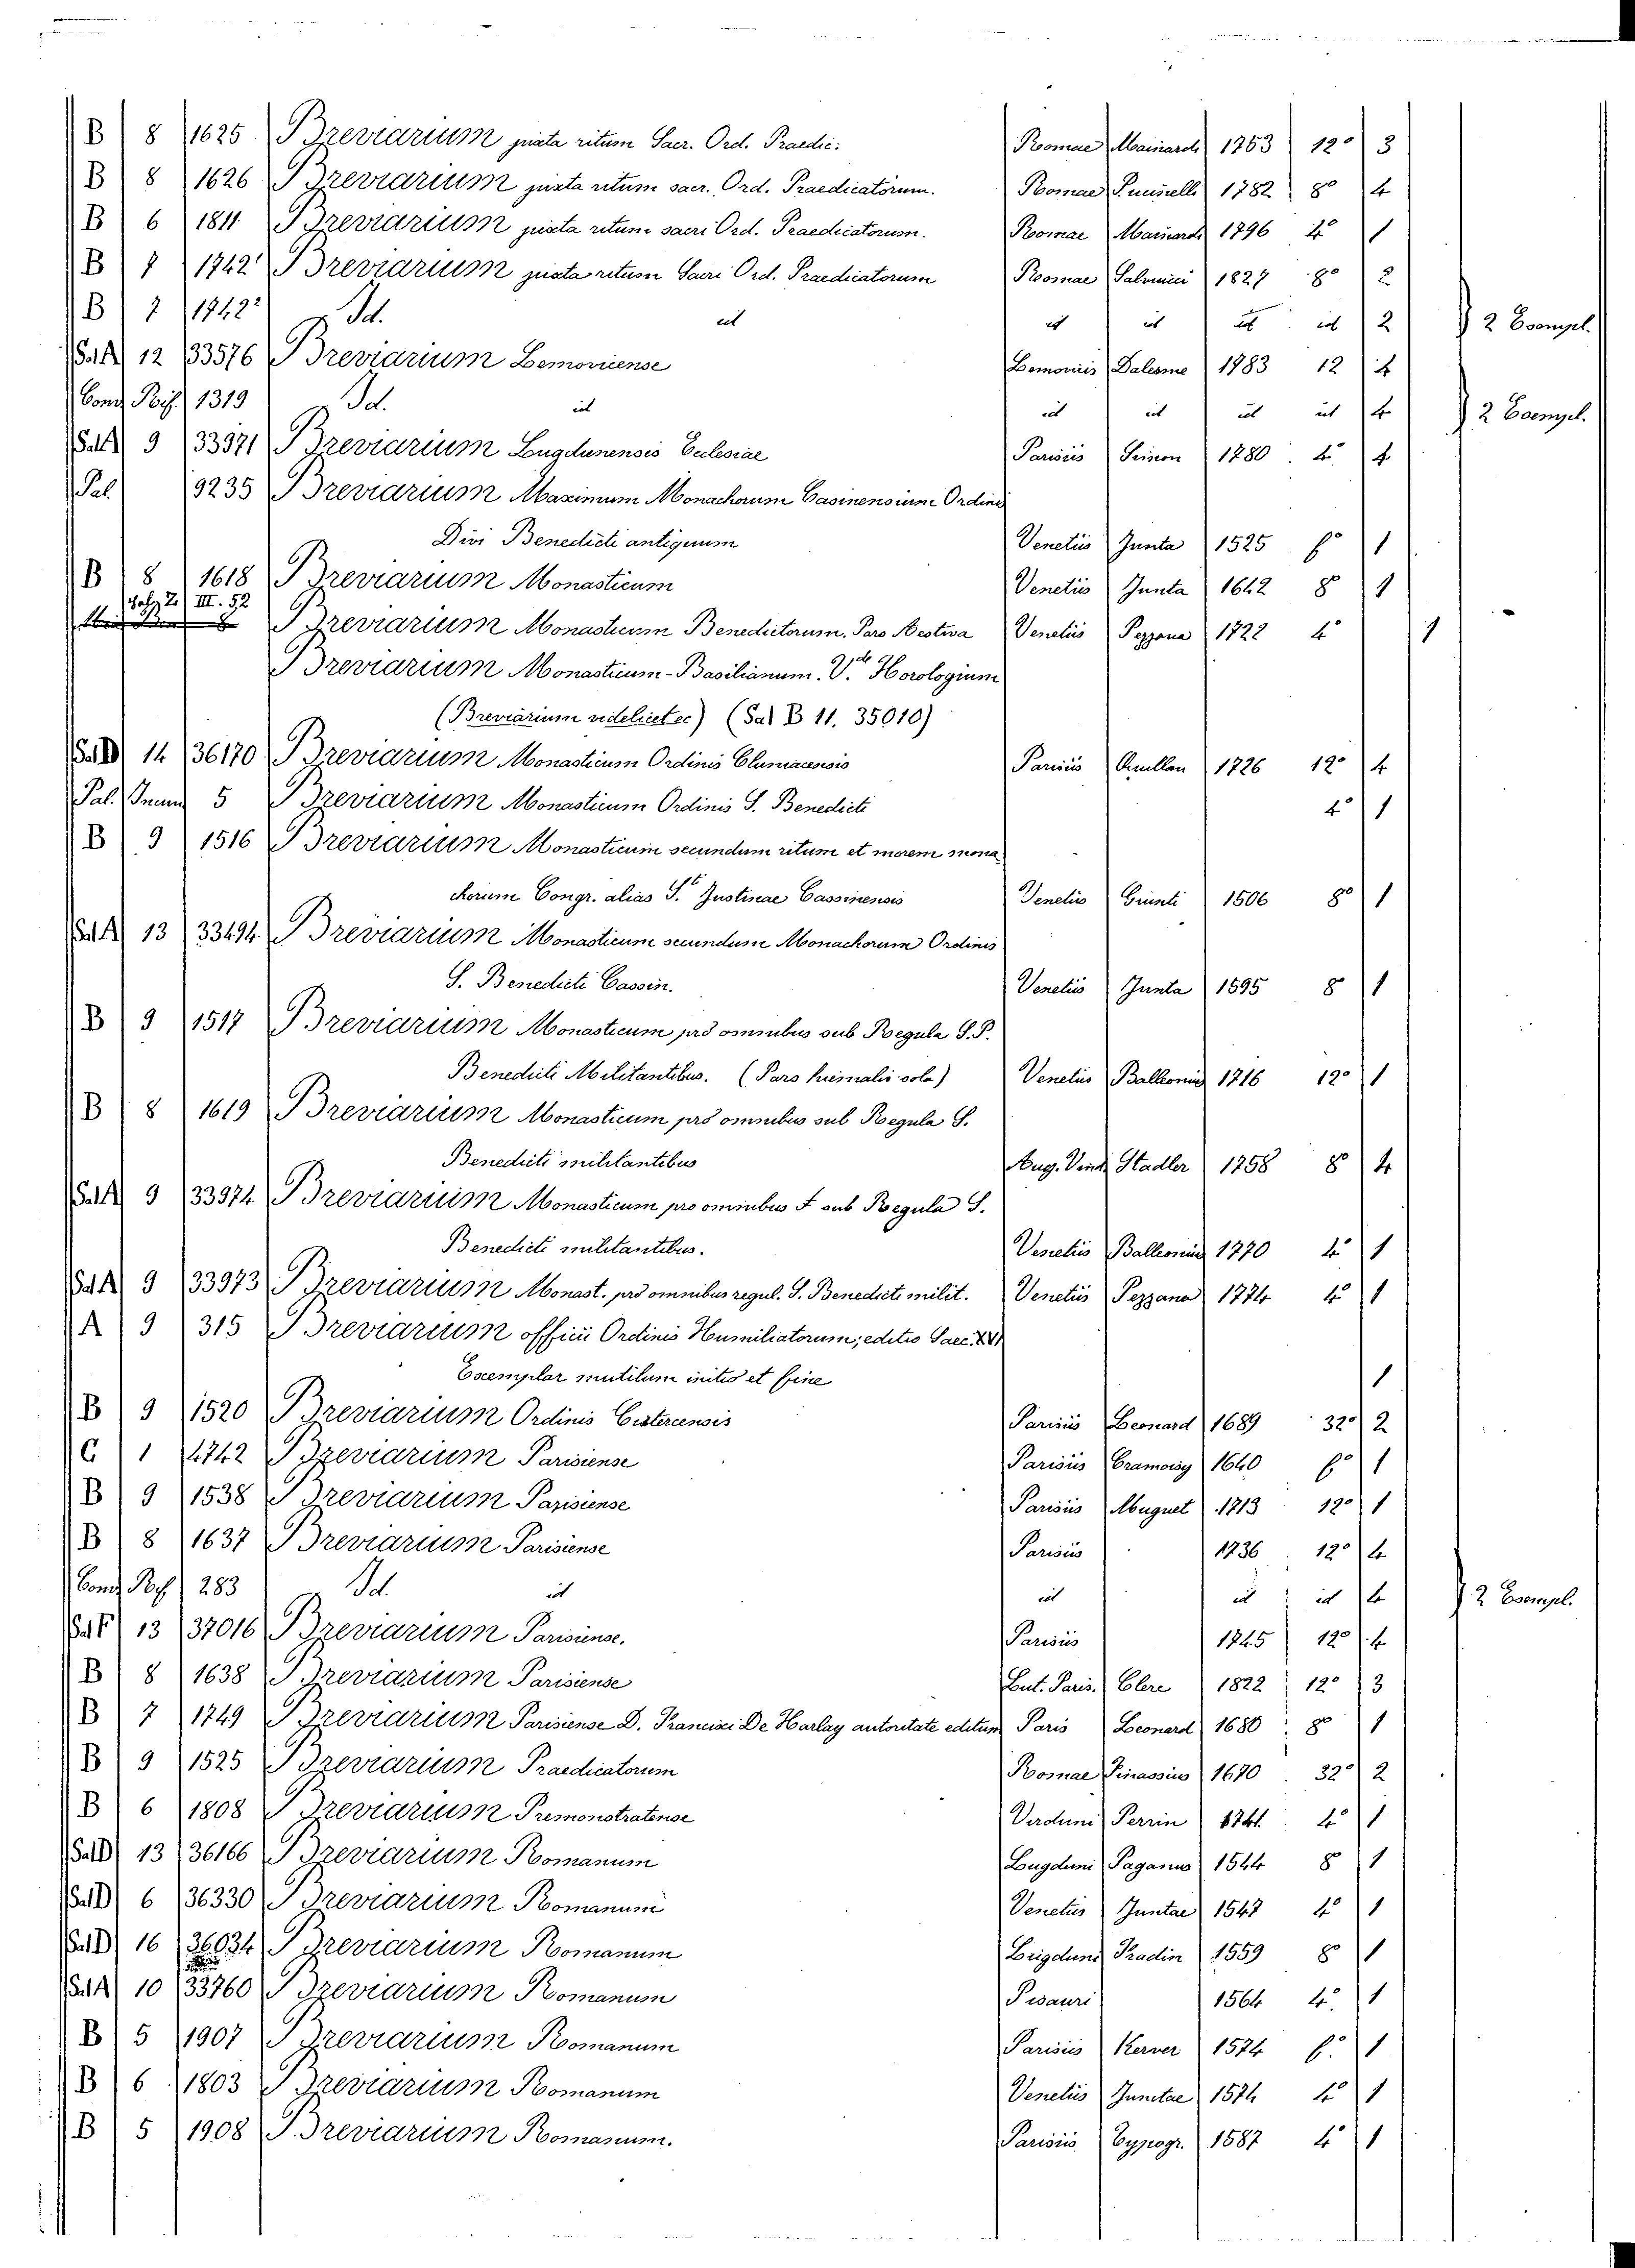 B 8 1625 Breviarium juxta ritum Sacr. Ord. Praedic. Romae Mainardi 1753 12° 3
B 8 1626 Breviarium juxta ritum sacr. Ord. Praedicatorum. Romae Puccinelli 1782 8° 4
B 6 1811 Breviarium juxta ritum sacri Ord. Praedicatorum. Romae Mainardi 1796 4° 1
B 7 1742 Breviarium juxta ritum Sacri Ord. Praedicatorum Romae Salviucci 1827 8° 2
B 7 1742² Id. id id id id id 2 2 Exempl.
Sal A 12 33576 Breviarium Lemoviciense Lemovicis Dalesme 1783 12 4
Cons Reif. 1319 Id. id id id id id 4 2 Exempl.
Sal A 9 33971 Breviarium Lugdunensis Ecclesiae Parisiis Simon 1780 4° 4
Pal 9235 Breviarium Maximum Monachorum Casinensium Ordinis
Divi Benedicti antiquum Venetiis Junta 1525 f° 1
B 8 1618 Breviarium Monasticum Venetiis Junta 1642 8 1
III. 52
Breviarium Monasticum Benedictorum. Pars Aestiva Venetiis Pezzana 1722 4° 1
Breviarium Monasticum-Basilianum. V.de Horologium
(Breviarium videlicet ec) (Sal B 11. 35010)
Sal D 14 36170 Breviarium Monasticum Ordinis Cluniacensis Parisiis 1726 12° 4
Pal. Incun 5 Breviarium Monasticum Ordinis S. Benedicti 4° 1
B 9 1516 Breviarium Monasticum secundum ritum et morem mona
chorum Congr. alias S.te Justinae Cassinensis Venetiis Giunti 1506 8° 1
Sal A 13 33494 Breviarium Monasticum secundum Monachorum Ordinis
S. Benedicti Cassin. Venetiis Junta 1595 8 1
B 9 1517 Breviarium Monasticum pro omnibus sub Regula S.P.
Benedicti Militantibus. (Pars hiemalis sola) Venetiis Balleoniis 1716 12° 1
B 8 1619 Breviarium Monasticum pro omnibus sub Regula S.
Benedicti militantibus Aug. Vind. Stadler 1758 8° 4
Sal A 9 33974 Breviarium Monasticum pro omnibus sub Regula S.
Benedicti militantibus. Venetiis Balleoniis 1770 4° 1
Sal A 9 33973 Breviarium Monast. pro omnibus regul. S. Benedicti milit. Venetiis Pezzana 1774 4° 1
A 9 315 Breviarium officii Ordinis Humiliatorum; editio Saec. XVI
Exemplar mutilum initio et fine 1
B 9 1520 Breviarium Ordinis Cisterciensis Parisiis Leonard 1689 32° 2
C 1 4742 Breviarium Parisiense Parisiis Cramoisy 1640 f° 1
B 9 1538 Breviarium Parisiense Parisiis Muguet 1713 12° 1
B 8 1637 Breviarium Parisiense Parisiis 1736 12° 4
Cons Reif. 283 Id. id id id id 4 2 Exempl.
Sal F 13 37016 Breviarium Parisiense. Parisiis 1745 12° 4
B 8 1638 Breviarium Parisiense Lut. Paris. Clere 1822 12° 3
B 7 1749 Breviarium Parisiense D. Francisci De Harlay autoritate editum Paris Leonard 1680 8° 1
B 9 1525 Breviarium Praedicatorum Romae Pinassius 1670 32° 2
B 6 1808 Breviarium Premonstratense Virduni Perrin 1741 4° 1
Sal D 13 36166 Breviarium Romanum Lugduni Paganus 1544 8 1
Sal D 6 36330 Breviarium Romanum Venetiis Juntae 1547 4° 1
Sal D 16 36034 Breviarium Romanum Lugduni Fradin 1559 8° 1
Sal A 10 33760 Breviarium Romanum Pisauri 1564 4° 1
B 5 1907 Breviarium Romanum Parisiis Kerver 1574 f° 1
B 6 1803 Breviarium Romanum Venetiis Junctae 1574 4° 1
B 5 1908 Breviarium Romanum. Parisiis Typogr. 1587 4° 1